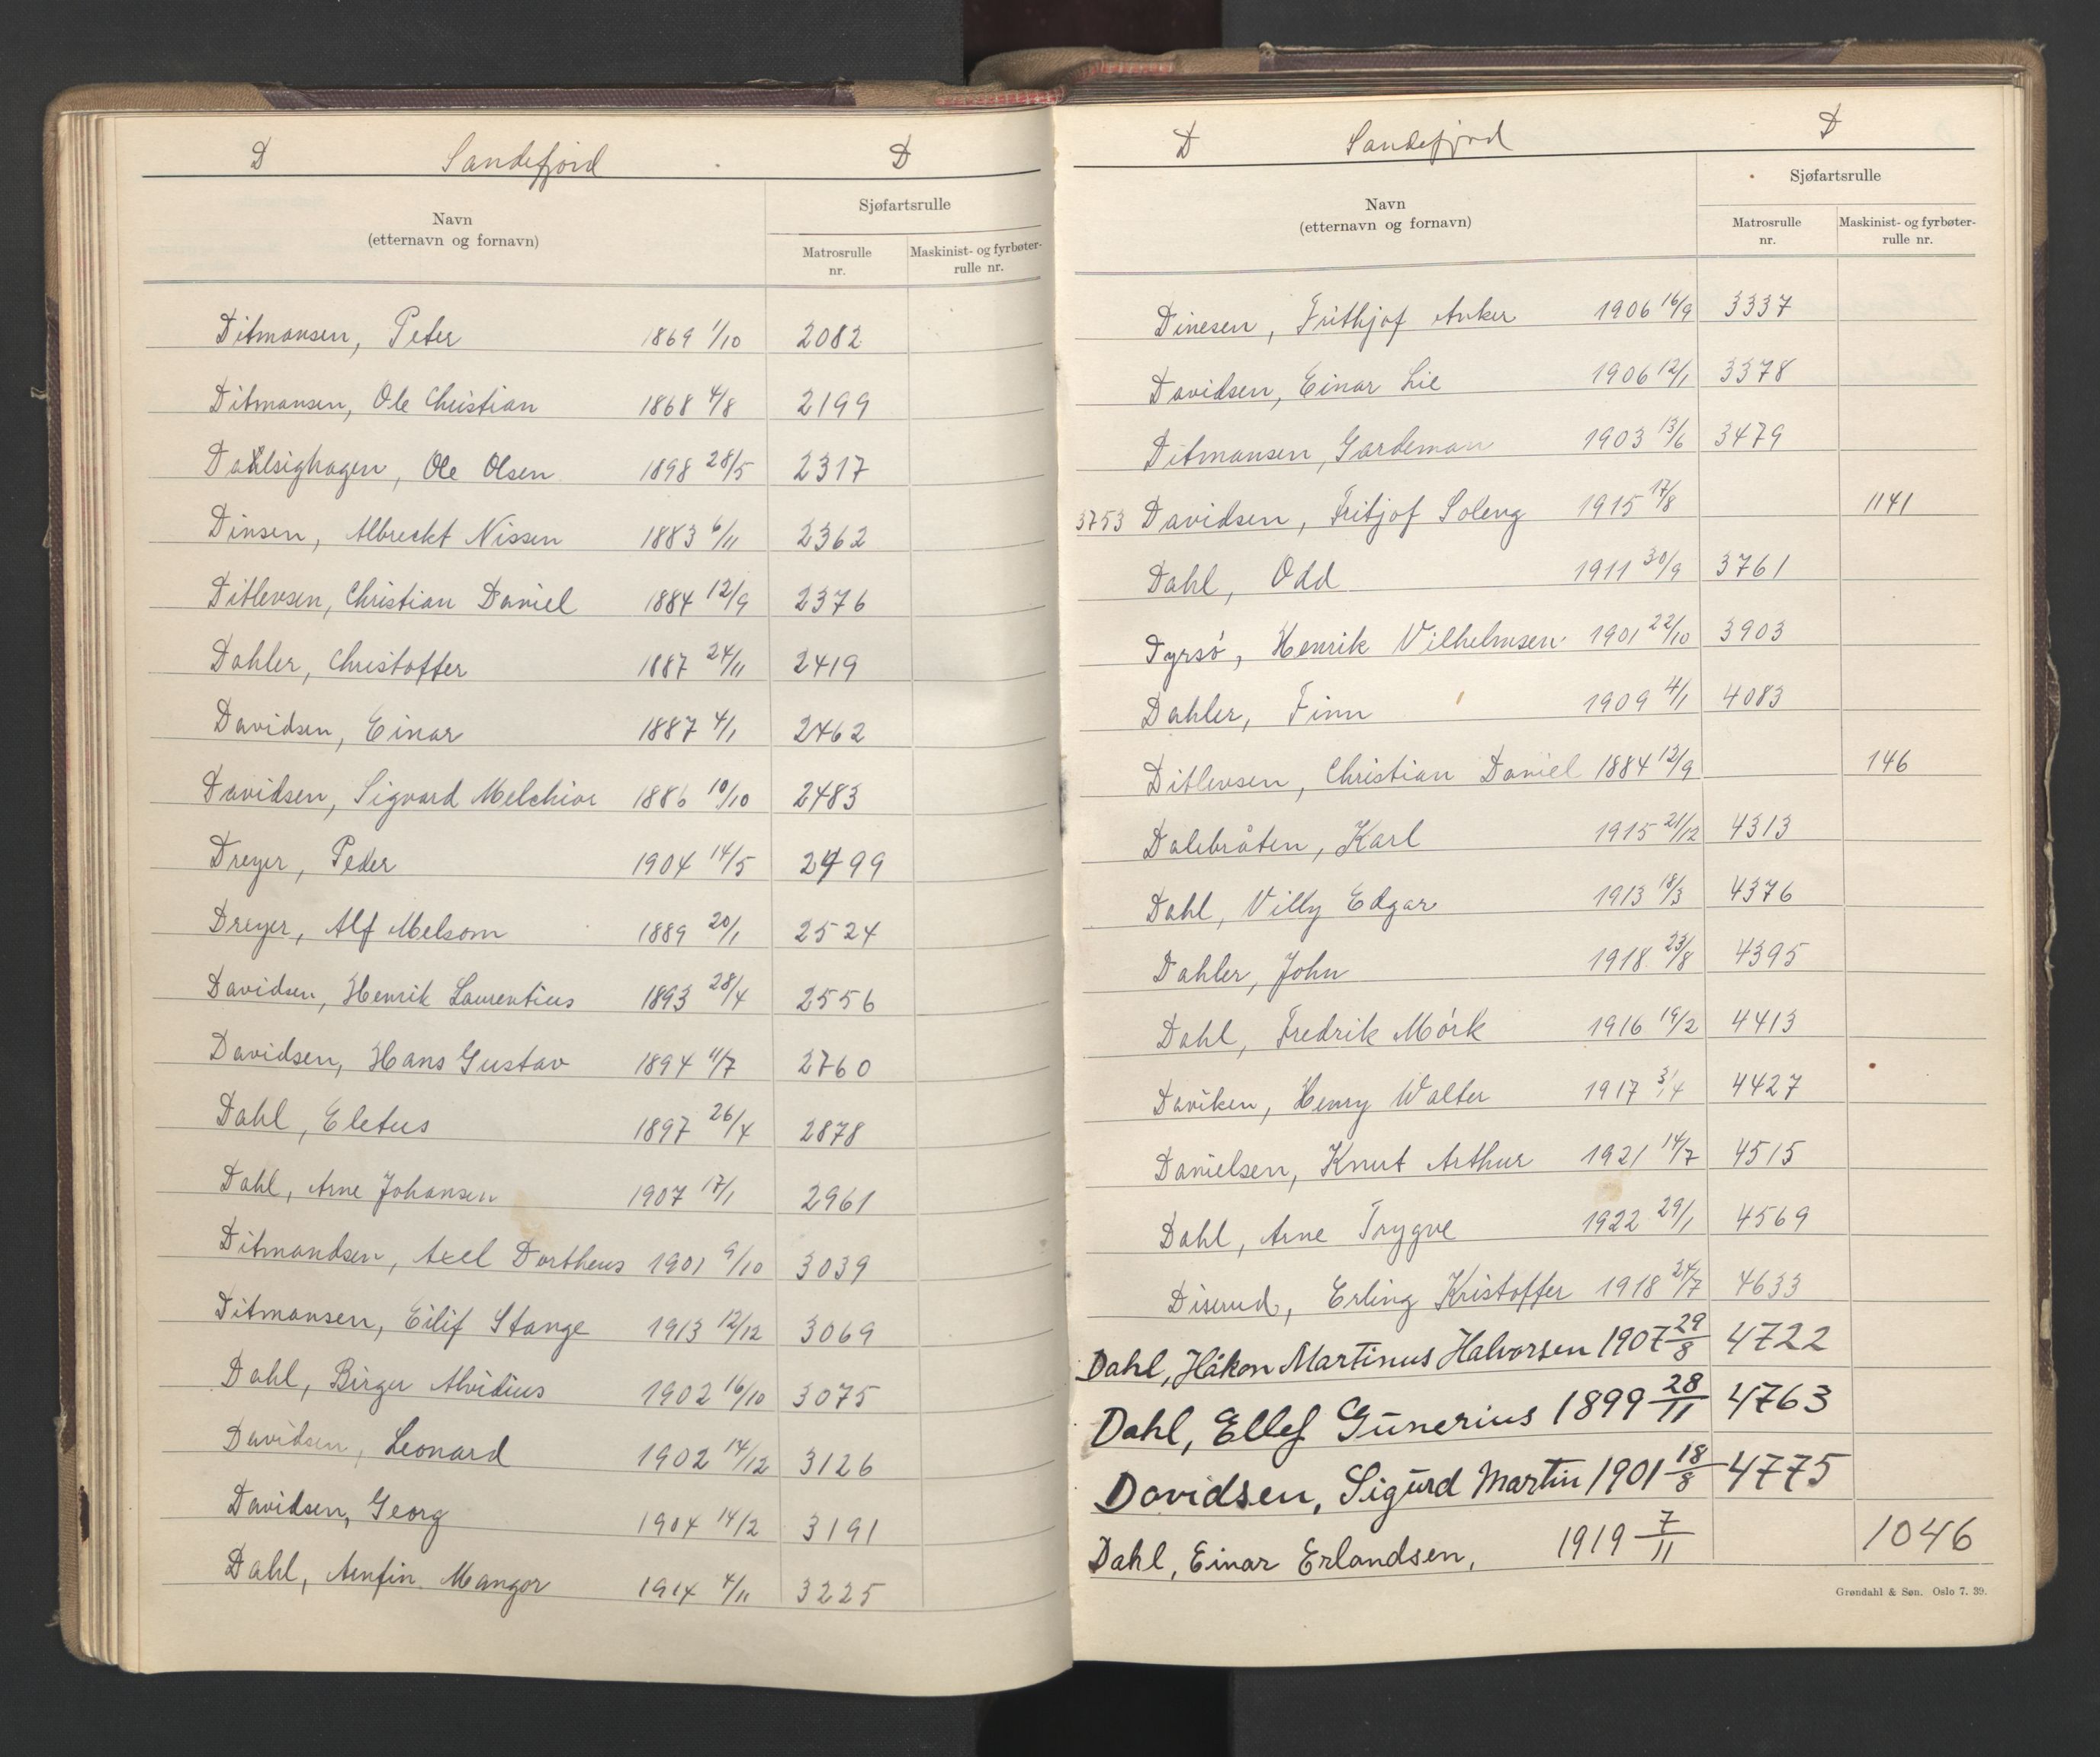 D Sandefjord D
Navn
(etternavn og fornavn)
Sjøfartsrulle
Matrosrulle
nr.
Maskinist- og fyrbøter-
rulle nr.
Ditmansen, Peter 1869 1/10 2082
Ditmansen, Ole Christian 1868 4/8 2199
Dahlsighagen, Ole Olsen 1898 28/5 2317
Dinsen, Albreckt Nissen 1883 6/11 2362
Ditlevsen, Christian Daniel 1884 12/9 2376
Dahler, Christoffer 1887 24/11 2419
Davidsen, Einar 1887 4/1 2462
Davidsen, Sigvard Melchior 1886 10/10 2483
Dreyer, Peder 1904 14/5 2499
Dreyer, Alf Melsom 1889 20/1 2524
Davidsen, Henrik Laurentius 1893 28/4 2556
Davidsen, Hans Gustav 1894 11/7 2760
Dahl, Eletus 1897 26/4 2878
Dahl, Arne Johansen 1907 17/1 2961
Ditmandsen, Axel Dortheus 1901 9/10 3039
Ditmansen, Eilif Stange 1913 12/12 3069
Dahl, Birger Alvidius 1902 16/10 3075
Davidsen, Leonard 1902 14/12 3126
Davidsen, Georg 1904 14/2 3191
Dahl, Arnfin Mangor 1914 4/11 3225
D Sandefjord D
Navn
(etternavn og fornavn)
Sjøfartsrulle
Matrosrulle
nr.
Maskinist- og fyrbøter-
rulle nr.
Dinesen, Frithjof Anker 1906 16/9 3337
Davidsen, Einar Lie 1906 12/1 3378
Ditmansen, Gardeman 1903 13/6 3479
3753 Davidsen, Fritjof Soleng 1915 17/8 1141
Dahl, Odd 1911 30/9 3761
Dyrsö, Henrik Vilhelmsen 1901 22/10 3903
Dahler, Finn 1909 4/1 4083
Ditlevsen, Christian Daniel 1884 12/9 146
Dalebråten, Karl 1915 21/12 4313
Dahl, Villy Edgar 1913 18/3 4376
Dahler, John 1918 23/8 4395
Dahl, Fredrik Mörk 1916 19/2 4413
Daviken, Henry Walter 1917 3/4 4427
Danielsen, Knut Arthur 1921 14/7 4515
Dahl, Arne Trygve 1922 29/1 4569
Diserud, Erling Kristoffer 1918 24/7 4633
Dahl, Håkon Martinus Halvorsen 1907 29/8 4722
Dahl, Ellef Gunerius 1899 28/11 4763
Davidsen, Sigurd Martin 1901 18/8 4775
Dahl, Einar Erlandsen, 1919 7/11 1046
Grøndahl & Søn. Oslo 7. 39.